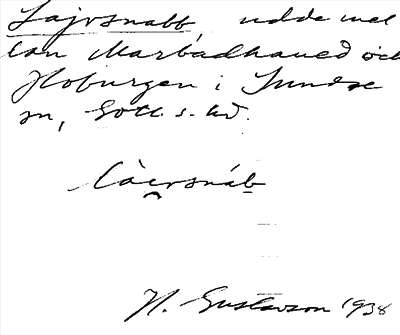 Lajvsnabb, udde mel
lan Marbådhaued och
Hoburgen i Sundre
sn, Gotl. s. hd.
Làɛvsnáb
H. Gustavson 1938